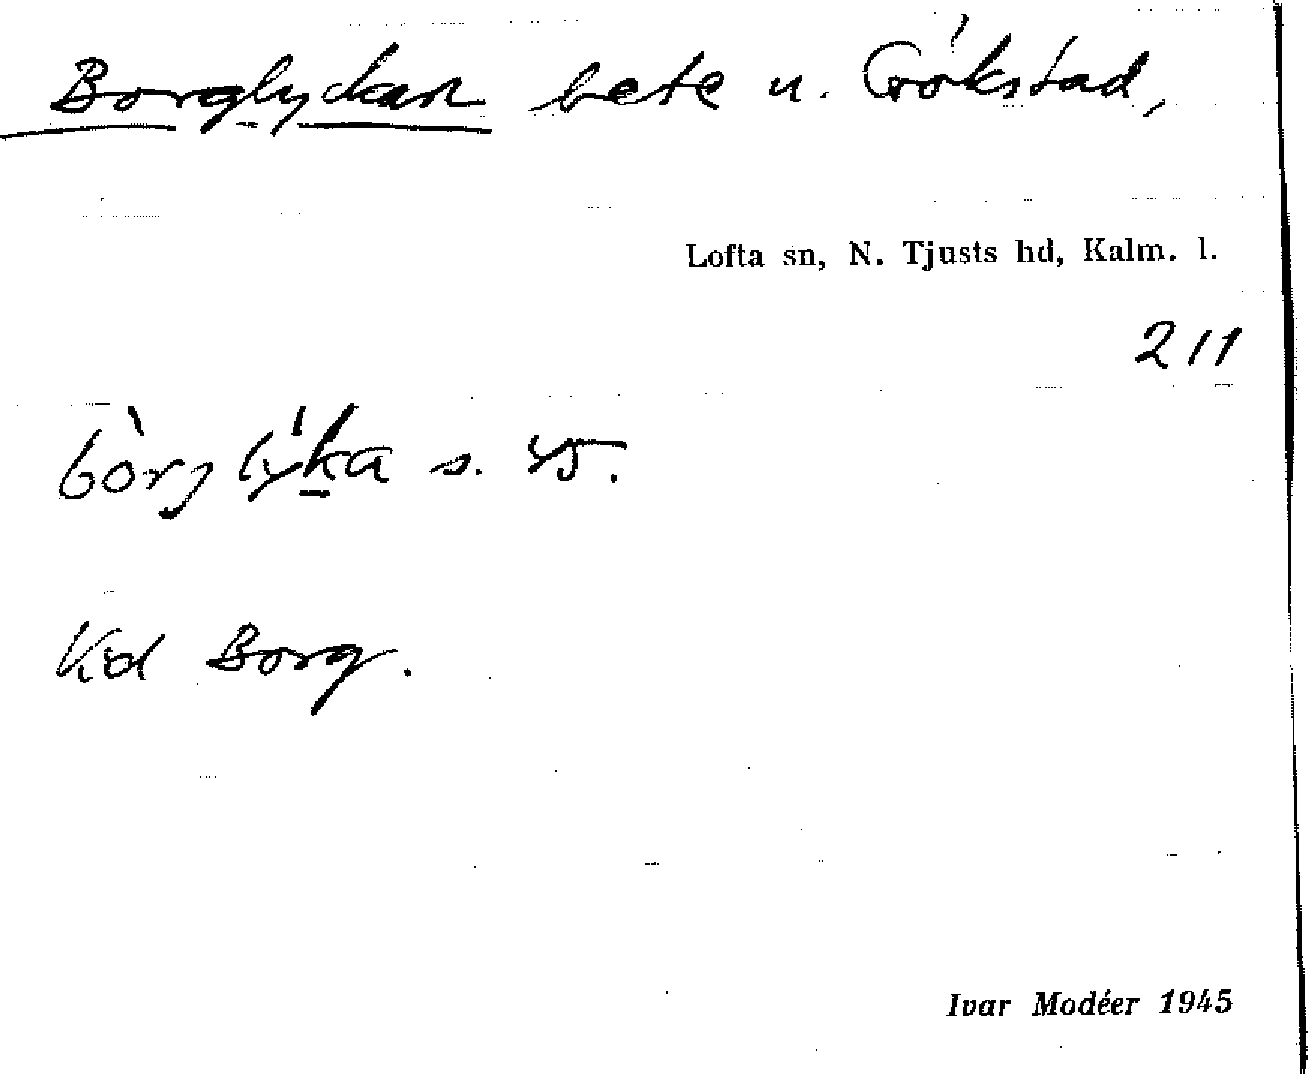 Borglyckan bete u. Gökstad,
Lofta sn, N. Tjusts hd, Kalm. l.
211
bòrj lýka s.
Vid Borg.
Ivar Modéer 1945